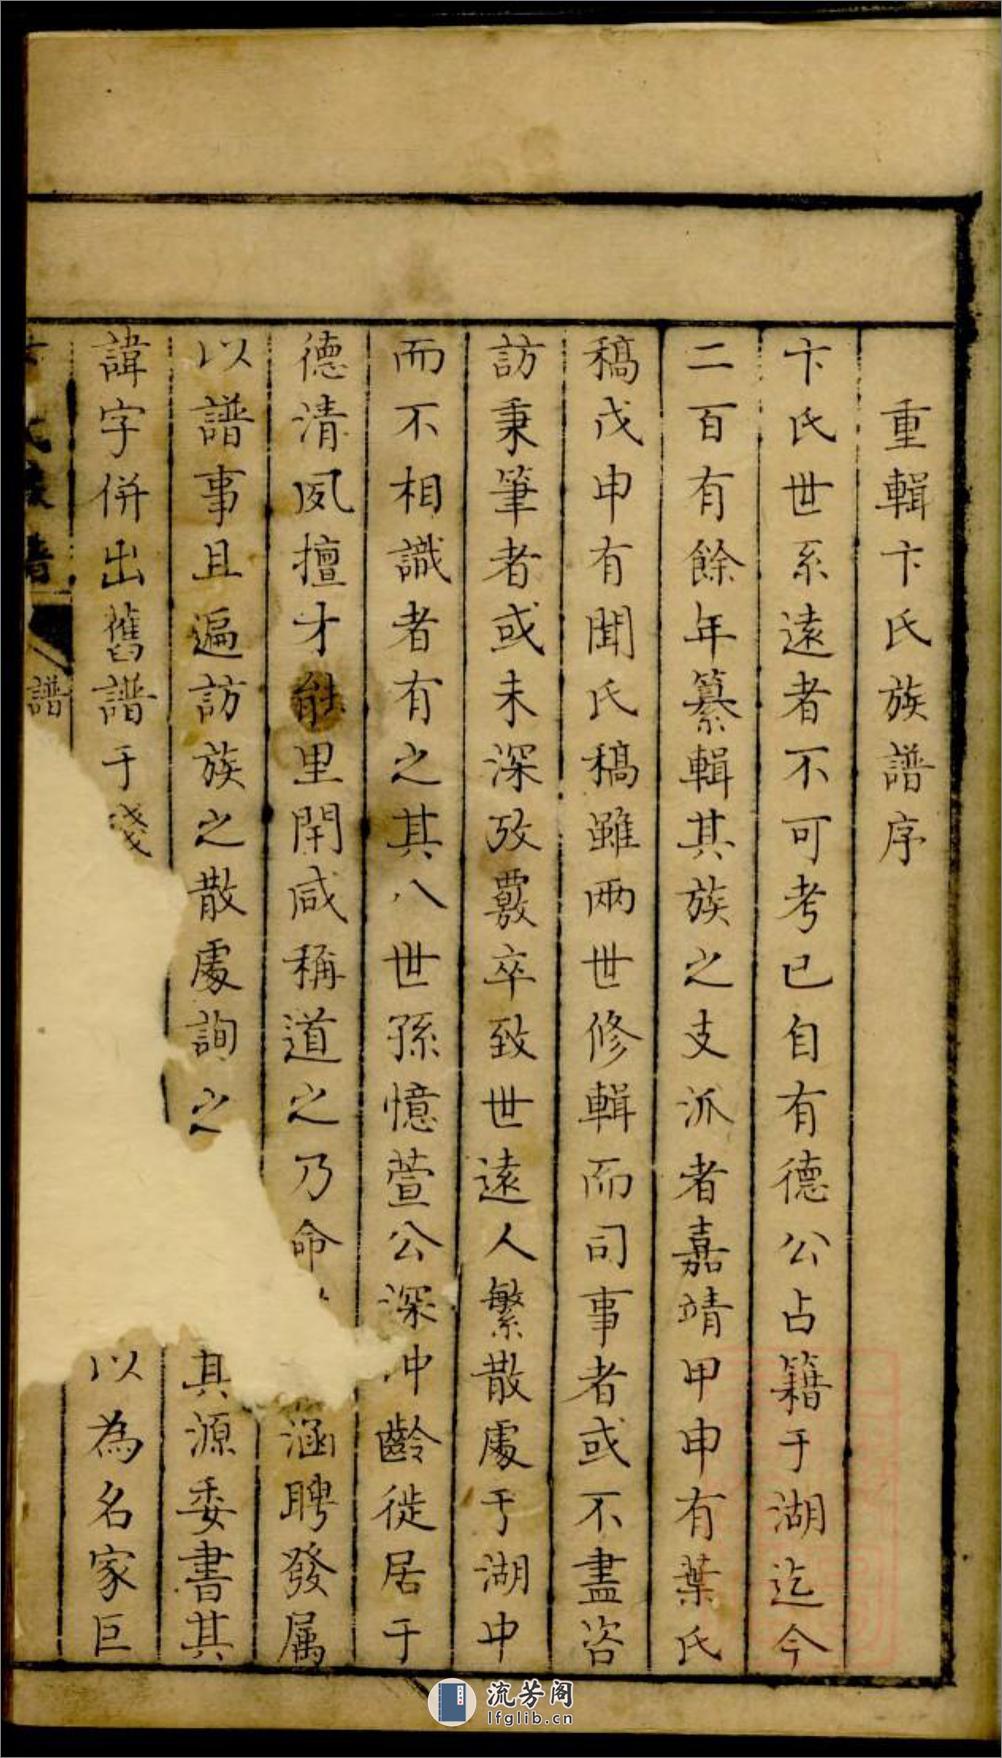 重輯卞氏族譜序
卞氏世系遠者不可考已自有德公占籍于湖迄今
二百有餘年纂輯其族之支派者嘉靖甲申有葉氏
稿戊申有閔氏稿雖兩世修輯而司事者或不盡咨
訪秉筆者或未深攷覈卒致世遠人繁散處于湖中
而不相識者有之其八世孫憶萱公深冲齡徙居于
德清夙擅才能里閈咸稱道之乃命 涵聘發属
以譜事且遍訪族之散處詢之 其源委書其
諱字併出舊譜于殘 以為名家巨
譜
流芳阁
lfglib.cn